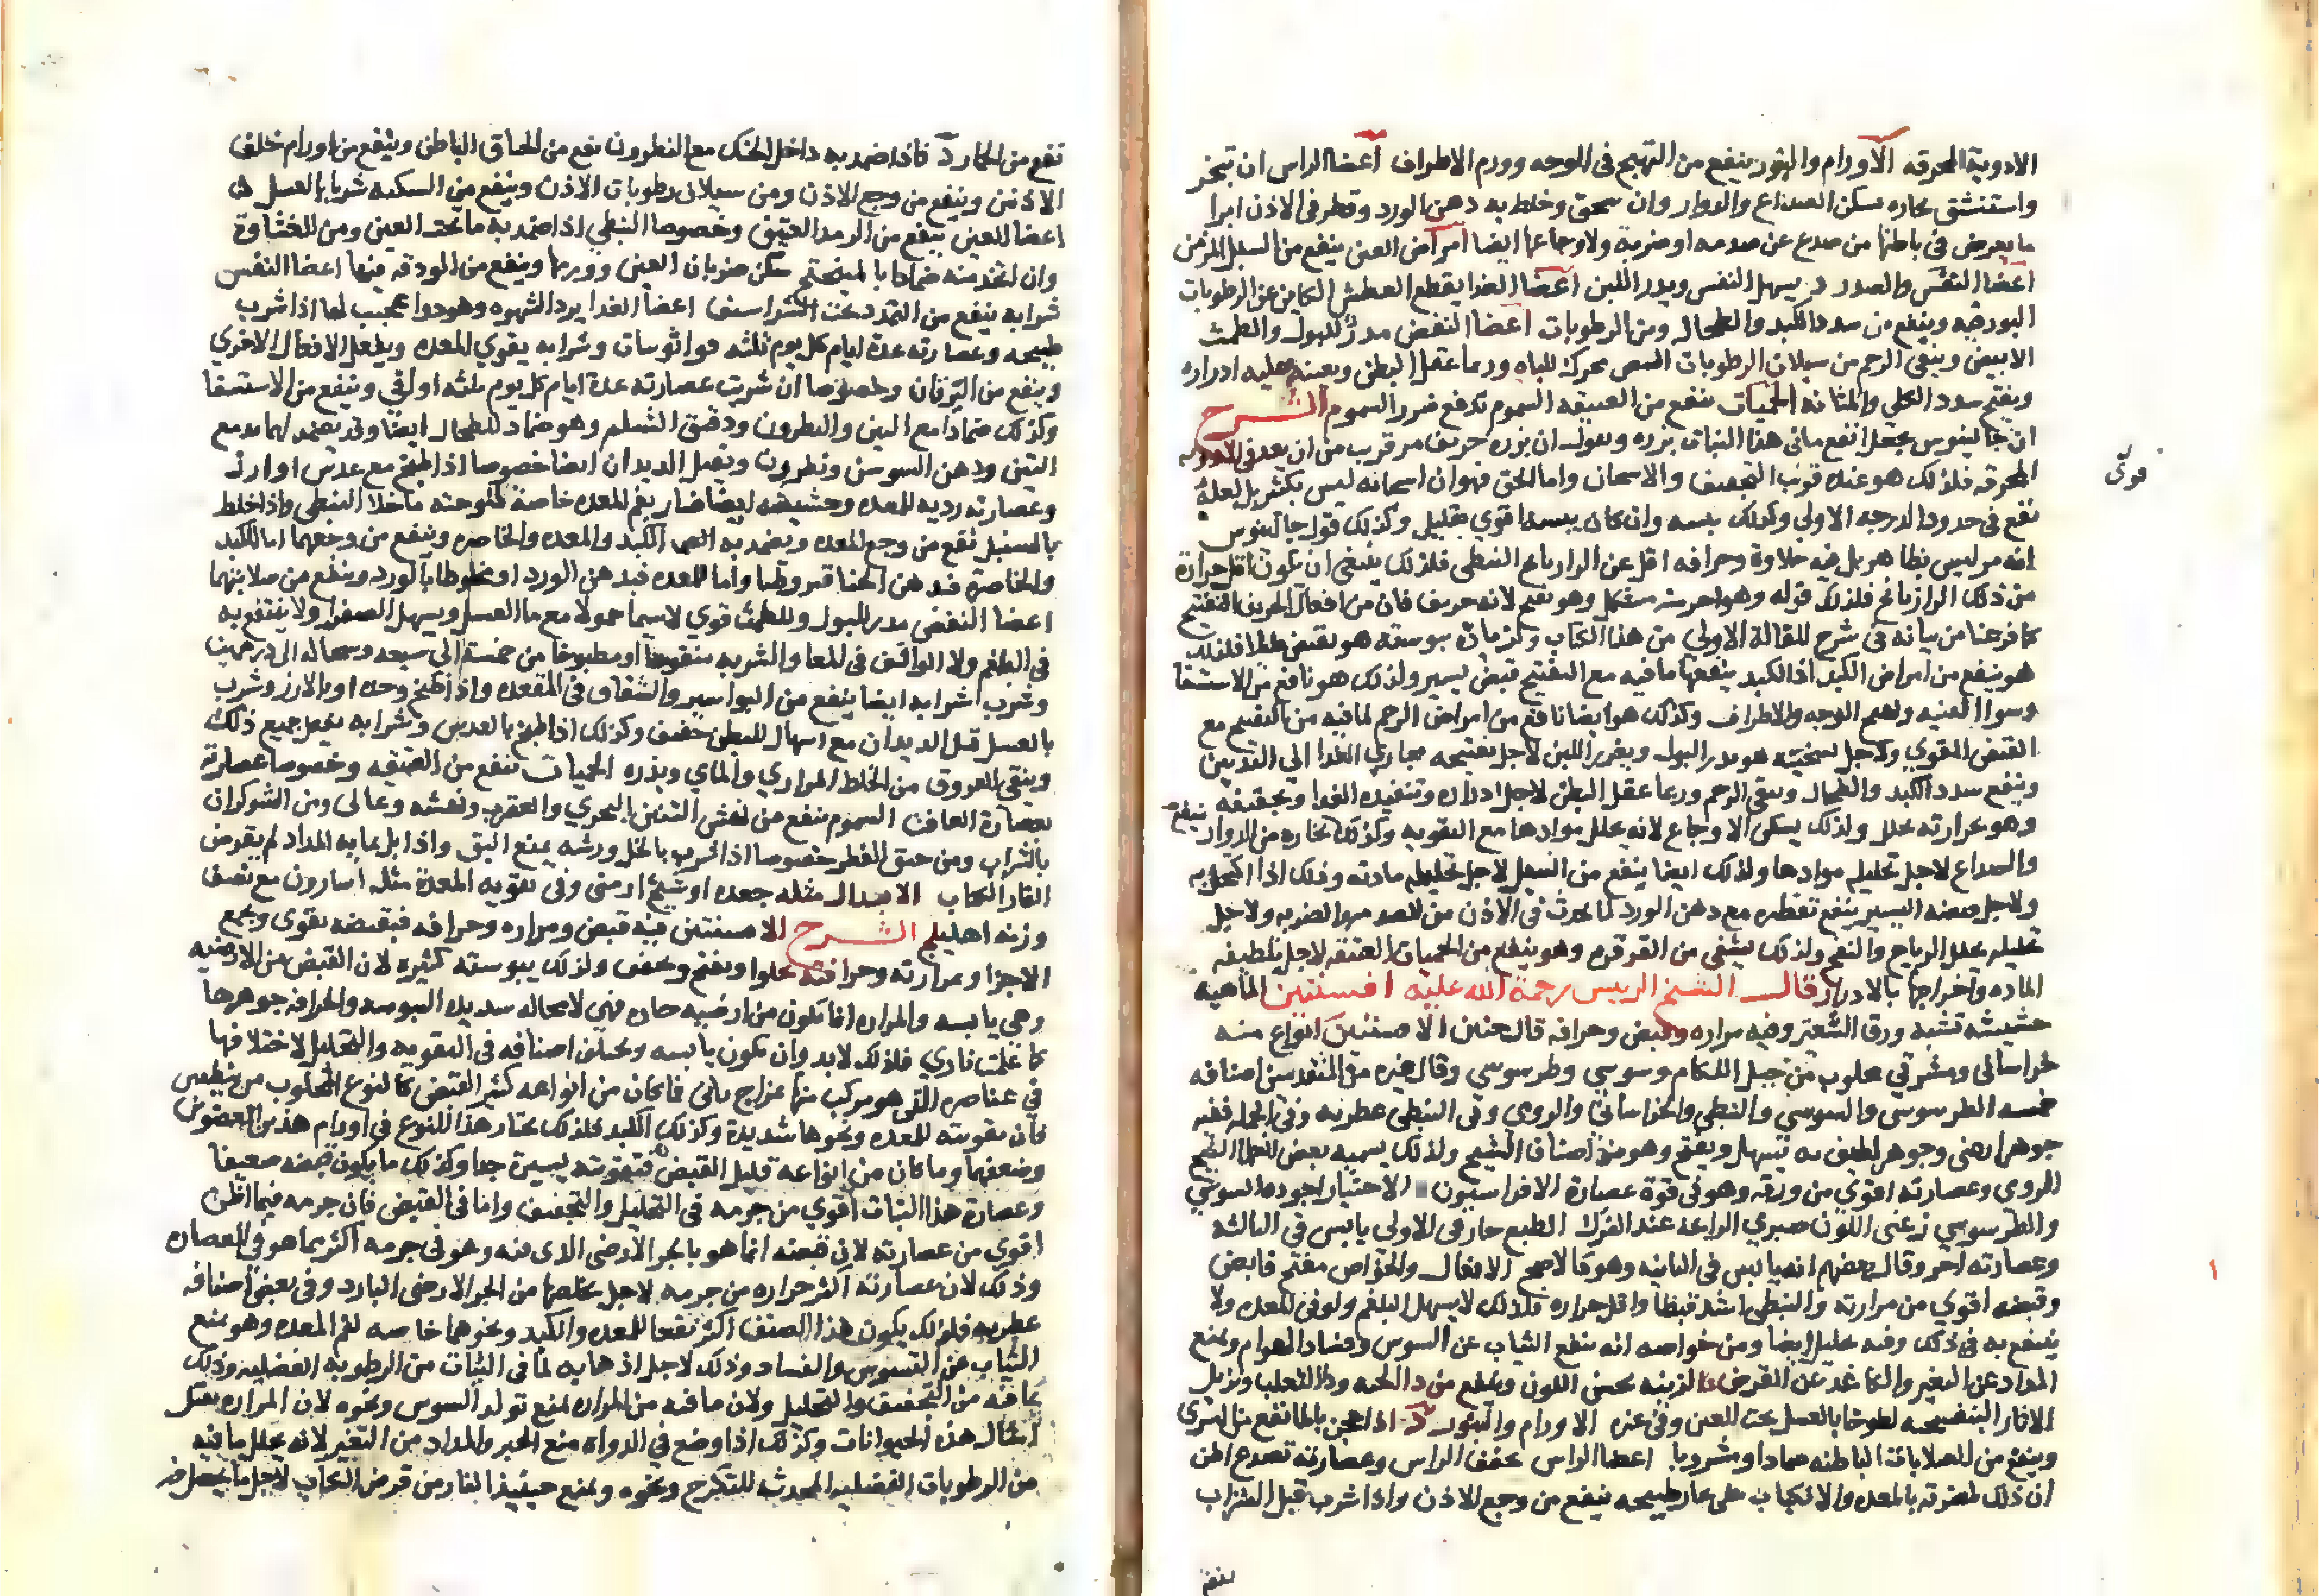 الادوية المحرقه الاورام والبثور ينفع من التهيج فى الوجه وورم الاطراف أعضا الراس ان تبخر
واستنشق بخاره سكن الصداع والدوار وان سحق وخلط به دهن الورد وقطر فى الاذن ابرا
ما يعرض فى باطنها من صدع عن صدمه او ضربة ولاوجاعها ايضا امراض العين ينفع من السبل المزمن
اعضا النفس والصدر يسهل النفس ويدر اللبن اعضا الغدا يقطع العطش الكاين عن الرطوبات
البورقيه وينفع من سدد الكبد والطحال ومن الرطوبات اعضا النفض مدر للبول والطمث
الابيض وينقى الرحم من سيلان الرطوبات البيض محركة للباه وربما عقل البطن ويعينه عليه ادراره
ويفتح سدد الكلي والمثانه الحميات ينفع من العتيقه السموم تدفع ضرر السموم الشرح
ان جالينوس يجعل انفع ما فى هذا النبات بزره ويقول ان بزره حريف مر قريب من ان يعد فى الادويه
المحرقه فلذلك هو عنده قوى التجفيف والاسخان واما الحق فهو ان اسخانه ليس بكثير بل لعله
نفع فى حدود الدرجه الاولي وكذلك يبسه وان كان يبسه اقوي بقليل وكذلك قول جالينوس
انه مر ليس بظاهر بل فيه حلاوة وحرافه اقل عن الرازيانج النبطى فلذلك ينبغى ان يكون اقل حرارة
من ذلك الرازيانج فلذلك قوله وهو حريف مشكل وهو يفتح لانه حريف فان من افعال الحريف التفتيح
كما فرغنا من بيانه فى شرح المقالة الاولي من هذا الكتاب
هو ينفع من امراض الكبد اذ الكبد ينفعها ما فيه مع التفتيح قبض يسير ولذلك هو نافع من الاستسقا
وسوا القنيه وتهيج الوجه والاطراف وكذلك هو ايضا نافع من امراض الرحم لما فيه من التفتيح مع
القبض المقوي ولاجل تسخينه هو مدر البول ويغزر اللبن لاجل تفتيحه مجاري الغدا الى الثديين
وينفع سدد الكبد والطحال وينقى الرحم وربما عقل البطن لاجل ادراره وتنفيذه الغدا وتجفيفه
وهو بحرارته محلل ولذلك يسكن الاوجاع لانه يحلل موادها مع التقويه وكذلك بخاره من الدوار ينفع
والصداع لاجل تحليله موادها ولذلك ايضا ينفع من السبل لاجل تحليله مادته وذلك اذا اكتحل به
ولاجل قبضه اليسير ينفع تقطيره مع دهن الورد لما يحدث فى الاذن من الصدمه والضربه ولاجل
تحليله محلل الرياح والنفخ ولذلك يشفى من القرقره وهو ينفع من الحميات العتيقه لاجل تلطيفه
الماده واخراجها بالادرار قال الشيخ الرييس رحمة الله عليه افسنتين الماهيه
حشيشه تشبه ورق السعتر وفيه مراره وقبض وحرافه قال حنين الافسنتين انواع منه
خراسانى ومشرقي مجلوب من جبل اللكام وسوسي وطرسوسي وقال غيره من المتقدمين اصنافه
خمسه الطرسوسى والسوسي والنبطي والخراساني والرومى وفى النبطى عطريه وفى الجمله ففيه
جوهر ارضى وجوهر لطيف به يسهل ويفتح وهو من اصناف الشيح ولذلك يسميه بعض الحكما الشيح
الرومى وعصارته اقوي من ورقه وهو فى قوة عصارة الافراسيون الاختيار اجوده السوسي
والطرسوسي زعنى اللون صبري الرايحه عند الفرك الطبع حار فى الاولي يابس فى الثالثه
وعصارته احر وقال بعضهم انه يابس فى الثانيه وهو الاصح الافعال والخواص مفتح قابض
وقبضه اقوي من مرارته والنبطى اشد قبضا واقل حراره فلذلك لا يسهل البلغم ولو فى المعده ولا
ينتفع به فى ذلك وفيه تحليل ايضا ومن خواصه انه يمنع الثياب عن السوس وفساد الهوام ويمنع
المداد عن التغير والكاغد عن القرض الزينه يحسن اللون وينفع من دا الحيه ودا الثعلب ويزيل
الاثار البنفسجيه لطوخا بالعسل تحت العين وفى غيره الاورام والبثور
وينفع من الصلابات الباطنه ضمادا ومشروبا اعضا الراس يجفف الراس وعصارته تصدع اظن
ان ذلك لمضرته بالمعده والانكباب على بخار طبيخه ينفع من وجع الاذن واذا شرب قبل الشراب
ينفع
قوى
نفع من الخمار فاذا ضمد به داخل الحنك مع النطرون نفع من الخناق الباطن وينفع من اورام خلف
الاذنين وينفع من وجع الاذن ومن سيلان رطوبات الاذن وينفع من السكته شربا بالعسل
اعضا العين ينفع من الرمد العتيق وخصوصا النبطي اذا ضمد به ما تحت العين ومن الغشاوة
وان اتخذ منه ضمادا بالميبختج سكن ضربان العين وورمها وينفع من الودقه فيها اعضا النفس
شرابه ينفع من التمدد تحت الشراسيف اعضا الغدا يرد الشهوه وهو دوا عجيب لها اذا شرب
طبيخه وعصارته عدة ايام كل يوم ثلثه قواثوسات وشرابه يقوي المعده ويفعل الافعال الاخري
وينفع من اليرقان وخصوصا ان شربت عصارته عدة ايام كل يوم ثلثه اواقي وينفع من الاستسقا
وكذلك ضمادا مع التين والنطرون ودقيق الشيلم وهو ضماد للطحال ايضا وقد يضمد لهما به مع
التين ودهن السوسن ونطرون ويقتل الديدان ايضا خصوصا اذا طبخ مع عدس او ارز
وعصارته رديه للمعده وحشيشه ايضا ضار بفم المعده خاصة لملوحته ما خلا النبطى واذا خلط
بالسنبل نفع من وجع المعده ويضمد به الكبد والمعده والخاصره وينفع من وجعهما اما للكبد
والخاصره فبدهن الحنا قيروطيا واما المعده فبدهن الورد او مخلوطا بالورد وينفع من صلابتهما
اعضا النفض مدر للبول وللطمث قوي لاسيما حمولا مع ما العسل ويسهل الصفرا ولا ينتفع به
فى البلغم ولا الواقف فى المعا والشربه منقوعا او مطبوخا من خمسة الى سبعه وبحاله الى درهمين
وشرب شرابه ايضا ينفع من البواسير والشقاق فى المقعده واذا طبخ وحده او بالارز وشرب
بالعسل قتل الديدان مع اسهال للبطن خفيف وكذلك اذا طبخ بالعدس وشرابه يفعل جميع ذلك
وينقى العروق من الخلط المراري والمائي ويدره الحميات ينفع من العتيقه وخصوصا عصارته
بعصارة الغافت السموم ينفع من نهش التنين البحري والعقرب ونهشه وغالى ومن الشوكران
بالشراب ومن خنق الفطر خصوصا اذا شرب بالخل ورشه يمنع البق واذا بل بمايه المداد لم يقرض
الفار الكتاب الابدال مثله جعده او شيح ارمنى وفى تقويه المعدة مثله اسارون مع نصف
وزنه اهليلج الشرح الافسنتين فيه قبض ومراره وحرافه فبقبضه يقوى ويجمع
الاجزا وبمرارته وحرافته يجلوا ويفتح ويجفف ولذلك يبوسته كثيره لان القبض من الارضيه
وهي يابسه والمراره انما تكون من ارضيه حاره فهى لا محاله شديده اليبوسه والحرافه جوهرها
كما علمت نارى فلذلك لابد وان تكون يابسه ويختلف اصنافه فى التقويه والتحليل لاختلافها
فى عناصره التى هو مركب منها بمزاج ثانى فما كان من انواعه كثير القبض كالنوع المجلوب من بنطس
فان تقويته للمعده ونحوها شديدة وكذلك الكبد فلذلك يختار هذا النوع فى اورام هذين العضوين
وضعفهما وما كان من انواعه قليل القبض فتقويته يسيرة جدا وكذلك ما يكون قبضه ضعيفا
وعصارة هذا النبات اقوي من جرمه فى التحليل والتجفيف واما فى القبض فان جرمه فيما اظن
اقوي من عصارته لان قبضه انما هو بالجزء الارضى الذى فيه وهو فى جرمه اكثر مما هو فى العصاره
وذلك لان عصارته اكثر حراره من جرمه لاجل تخلصها من الجز الارضى البارد وفى بعض اصنافه
عطريه فلذلك يكون هذا الصنف اكثر نفعا للمعده والكبد ونحوهما خاصه لفم المعده وهو يمنع
الثياب من التسوس والفساد وذلك لاجل اذهابه لما فى الثياب من الرطوبه الفضليه وذلك
بما فيه من التجفيف والتحليل ولان ما فيه من المراره يمنع تولد السوس ونحوه لان المراره يقتل
امثال هذه الحيوانات وكذلك اذا وضع في الدواه منع الحبر والمداد من التغير لانه يحلل ما فيه
من الرطوبات الفضليه المحدثه للتكرج ونحوه ويمنع حينيذ الفار من قرض الكتاب لاجل ما يحصل فى